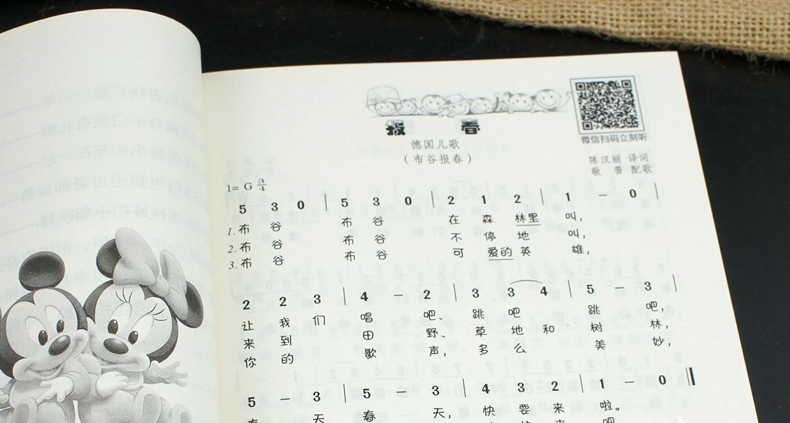 报 春
微信扫码立刻听
德国儿歌
(布谷报春)
陈汉丽 译词
敬 普 配歌
1= G 3/4
5 3 0 | 5 3 0 | 2 1 2 | 1 - 0 |
1. 布 谷 布 谷 在 森 林里 叫,
2. 布 谷 布 谷 不 停 地 叫,
3. 布 谷 布 谷 可 爱的 英 雄,
2 2 3 | 4 - 2 | 3 3 4 | 5 - 3 |
让 我 们 唱 吧、 跳 吧 跳 吧,
来 到 田 野、 草 地 和 树 林,
你 的 歌 声, 多 么 美 妙,
5 - 3 | 5 - 3 | 4 3 2 | 1 - 0 ‖
春 天 春 天, 快 要 来 啦。
吧